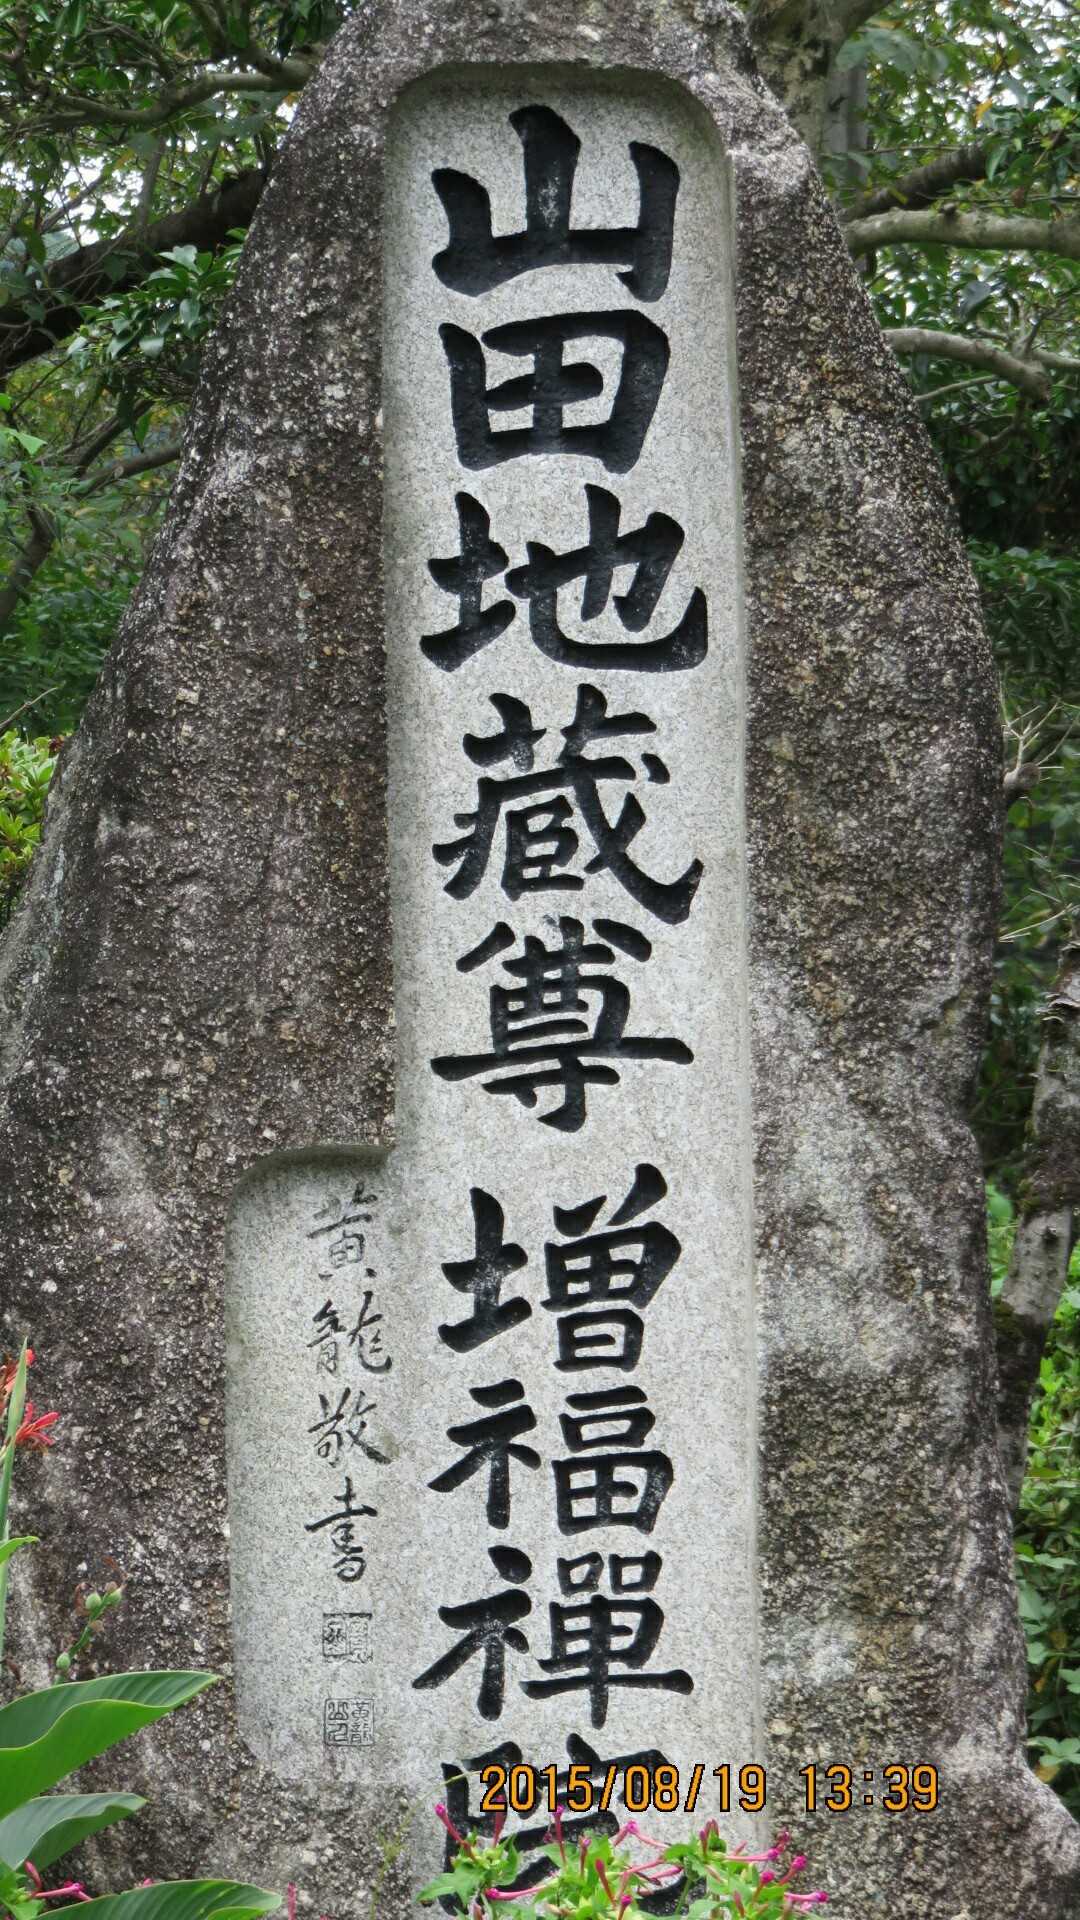 山田地蔵尊 増福禪院
黄龍敬書
2015/08/19 13:39